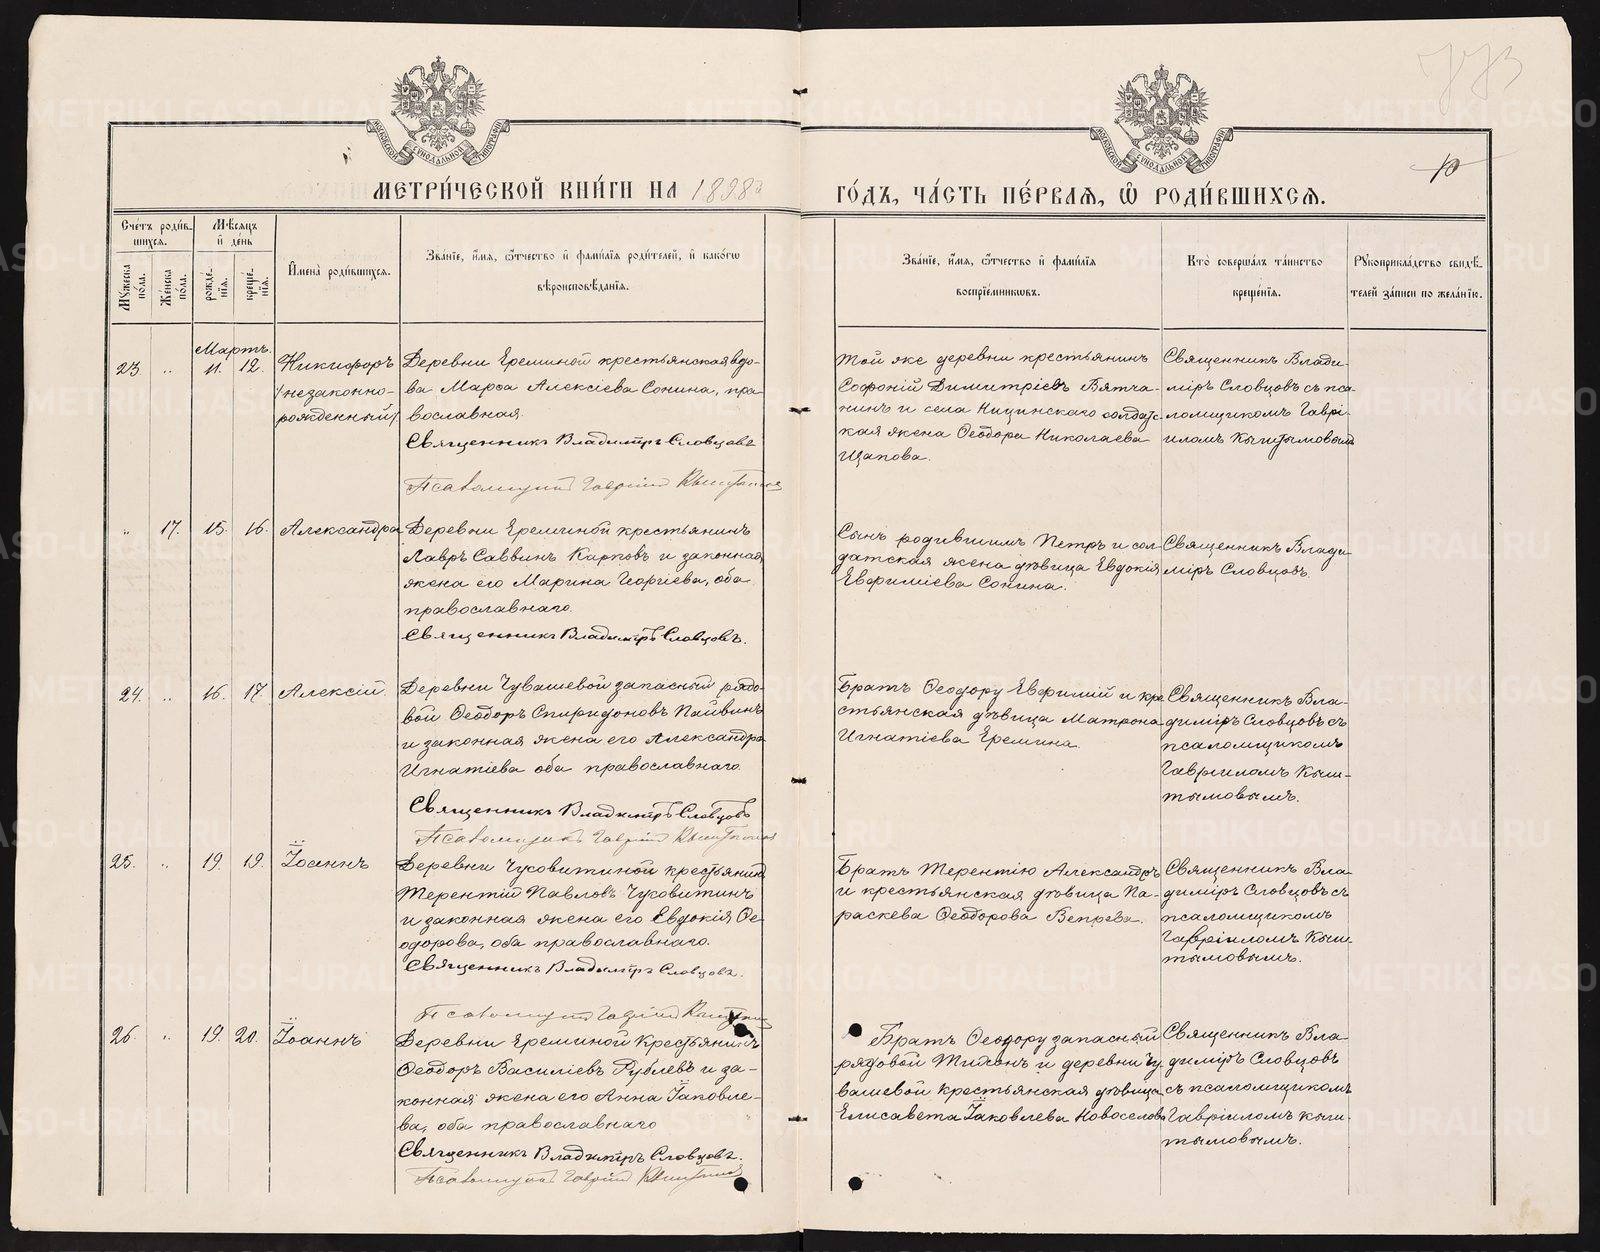 773
10
МЕТРИ́ЧЕСКОЙ КНИ́ГИ НА 1898й
ГО́ДЪ, ЧА́СТЬ ПЕ́РВАѦ, Ѽ РОДИ́ВШИХСѦ.
Сче́тъ роди́в-
шихсѧ.
Мꙋ́жеска по́ла.
Же́нска по́ла.
Мѣ́сѧцъ и҆ де́нь
рожде́-нїѧ.
креще́-нїѧ.
И҆мена̀ роди́вшихсѧ.
Зва́нїе, и҆́мѧ, ѻ҆́тчество и҆ фами́лїѧ роди́телей, и҆ како́гѡ
вѣроисповѣ́данїѧ.
Зва́нїе, и҆́мѧ, ѻ҆́тчество и҆ фами́лїѧ
воспрїе́мникѡвъ.
Кто̀ соверша́лъ та́инство
креще́нїѧ.
Рꙋкоприкла́дство свидѣ́-
телей за́писи по жела́нїю.
Мартъ.
23. „ 11. 12.
Никифоръ
/незаконно-
рожденный/
Деревни Ереминой крестьянская вдо-
ва Марѳа Алексіева Сонина, пра-
вославная.
Священникъ Владиміръ Словцовъ
Псаломщикъ Гавріилъ Кыштымов
Той же деревни крестьянинъ
Софоній Димитріевъ Вятча-
нинъ и села Ницинскаго солдатс-
кая жена Ѳеодора Николаева
Щапова.
Священникъ Влади-
міръ Словцовъ съ пса-
ломщикомъ Гаврі-
иломъ Кыштымовымъ
„ 17. 15. 16.
Александра
Деревни Ереминой крестьянинъ
Лавръ Саввинъ Карповъ и законная
жена его Марина Георгіева, оба
православнаго.
Священникъ Владиміръ Словцовъ.
Сынъ родившимъ Петръ и сол-
датская жена дѣвица Евдокія
Евфиміева Сонина.
Священникъ Влади-
міръ Словцовъ.
24. „ 16. 17.
Алексій.
Деревни Чувашевой запасный рядо-
вой Ѳеодоръ Спиридоновъ Пайвинъ
и законная жена его Александра
Игнатіева оба православнаго.
Священникъ Владиміръ Словцовъ
Псаломщикъ Гавріилъ Кыштымов
Братъ Ѳеодору Евфимій и кре-
стьянская дѣвица Матрона
Игнатіева Еремина.
Священникъ Вла-
диміръ Словцовъ съ
псаломщикомъ
Гавріиломъ Кыш-
тымовымъ.
25. „ 19. 19.
Іоаннъ
Деревни Чусовитиной крестьянинъ
Терентій Павловъ Чусовитинъ
и законная жена его Евдокія Ѳе-
одорова, оба православнаго.
Священникъ Владиміръ Словцовъ.
Псаломщикъ Гавріилъ Кыштымов
Братъ Терентію Александръ
и крестьянская дѣвица Па-
раскева Ѳеодорова Вепрева.
Священникъ Вла-
диміръ Словцовъ съ
псаломщикомъ
Гавріиломъ Кыш-
тымовымъ.
26. „ 19. 20.
Іоаннъ
Деревни Ереминой Крестьянинъ
Ѳеодоръ Василіевъ Рублевъ и за-
конная жена его Анна Іаковле-
ва, оба православнаго
Священникъ Владиміръ Словцовъ.
Псаломщикъ Гавріилъ Кыштымов
Братъ Ѳеодору запасный
рядовой Тихонъ и деревни Чу-
вашевой крестьянская дѣвица
Елисавета Іаковлева Новоселова
Священникъ Вла-
диміръ Словцовъ
съ псаломщикомъ
Гавріиломъ Кыш-
тымовымъ.